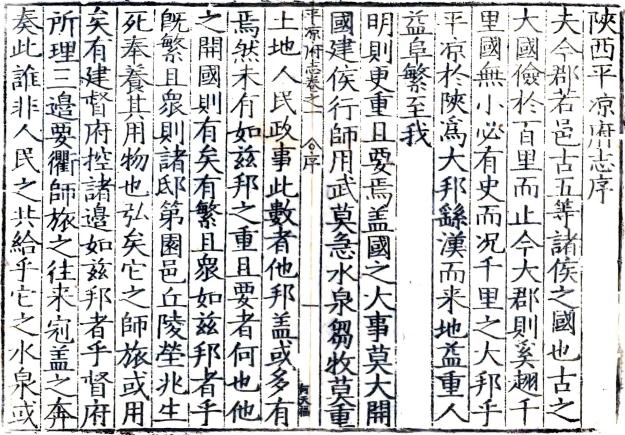 陝西平凉府志序
夫今郡若邑古五等諸侯之國也古之
大國儉於百里而止今大郡則奚翅千
里國無小必有史而况千里之大邦乎
平凉於陝爲大邦繇漢而来地益重人
益阜繁至我
明則更重且要焉盖國之大事莫大開
國建侯行師用武莫急水泉芻牧莫重
平凉府志卷之一 序 何天福
土地人民政事此數者他邦盖或多有
焉然未有如兹邦之重且要者何也他
之開國則有矣有繁且衆如兹邦者乎
既繁且衆則諸邸第園邑丘陵塋兆生
死奉養其用物也弘矣它之師旅或用
矣有建督府控諸邉如兹邦者乎督府
所理三邉要衢師旅之往来冠盖之奔
奏此誰非人民之共給乎它之水泉或